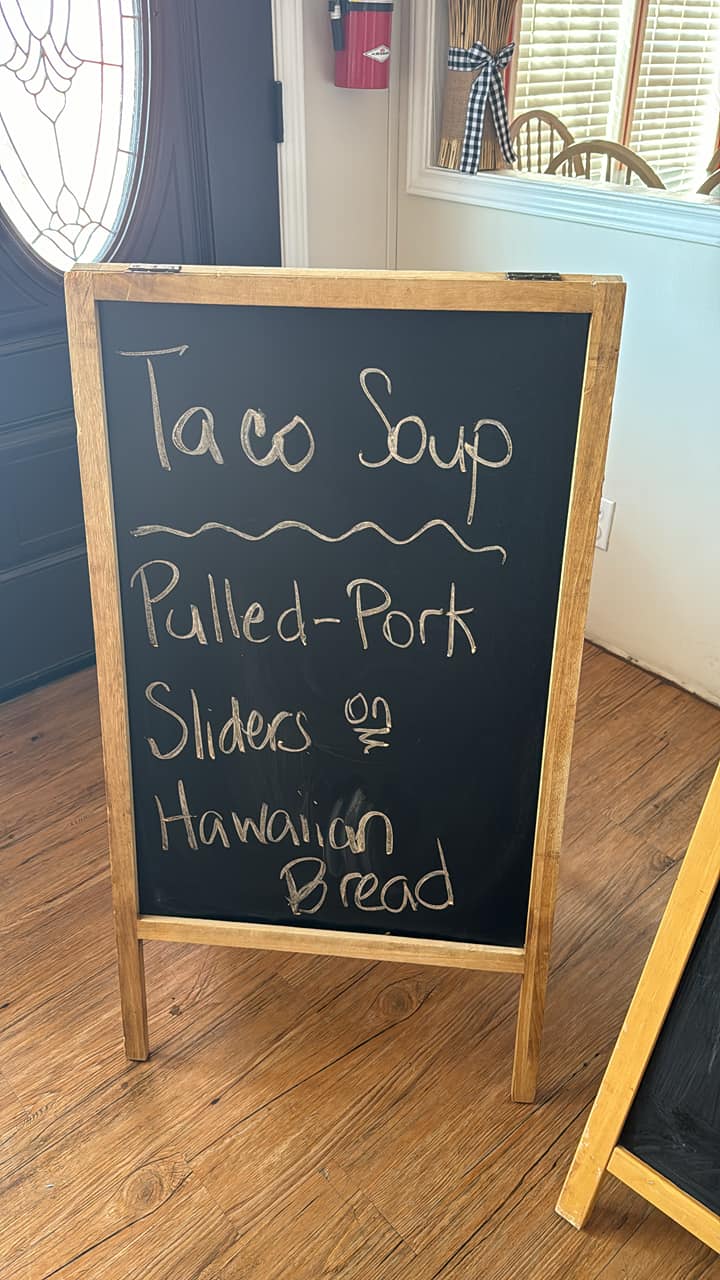 Taco Soup
Pulled-Pork
Sliders on
Hawaiian
Bread